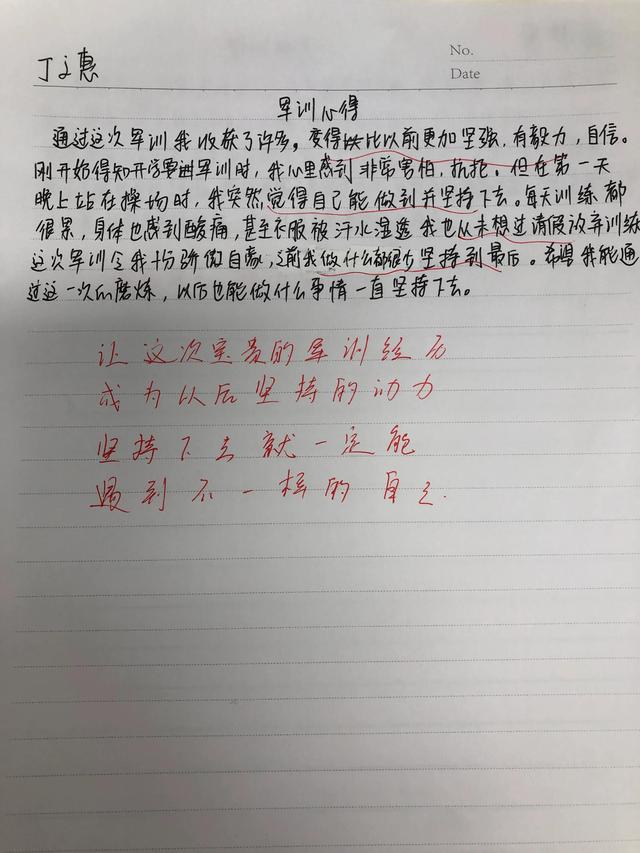 No.
丁文惠
Date
军训心得
通过这次军训我收获了许多。变得比以前更加坚强,有毅力,自信。
刚开始得知开学要进军训时,我心里感到非常害怕,抗拒。但在第一天
晚上站在操场时,我突然觉得自己能做到并坚持下去。每天训练都
很累,身体也感到酸痛,甚至衣服被汗水湿透我也从未想过请假放弃训练
这次军训令我十份骄傲自豪,之前我做什么都很少坚持到最后。希望我能通
过这一次的磨炼,以后也能做什么事情一直坚持下去。
让这次宝贵的军训经历
成为以后坚持的动力
坚持下去就一定能
遇到不一样的自己.